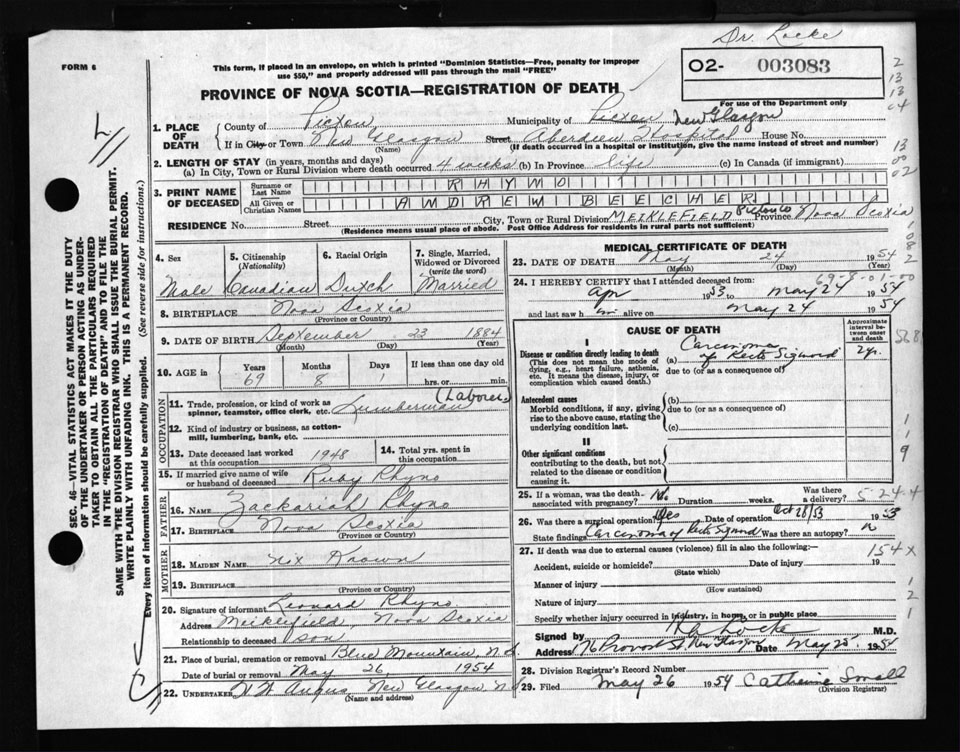 Dr. Locke
FORM 6
This form, if placed in an envelope, on which is printed "Dominion Statistics—Free, penalty for improper use $50," and properly addressed will pass through the mail "FREE"
02- 003083
PROVINCE OF NOVA SCOTIA—REGISTRATION OF DEATH
For use of the Department only
1. PLACE OF DEATH
County of Pictou Municipality of Pictou New Glasgow
If in City or Town New Glasgow (Name) Street Aberdeen Hospital House No.
(If death occurred in a hospital or institution, give the name instead of street and number)
2. LENGTH OF STAY (in years, months and days)
(a) In City, Town or Rural Division where death occurred 4 weeks (b) In Province life (c) In Canada (if immigrant)
3. PRINT NAME OF DECEASED
Surname or Last Name RHYNO
All Given or Christian Names ANDREW BEECHER
RESIDENCE No. Street City, Town or Rural Division MEIKLEFIELD Pictou Co Province Nova Scotia
(Residence means usual place of abode. Post Office Address for residents in rural parts not sufficient)
4. Sex Male
5. Citizenship (Nationality) Canadian
6. Racial Origin Dutch
7. Single, Married, Widowed or Divorced (write the word) Married
8. BIRTHPLACE Nova Scotia
(Province or Country)
9. DATE OF BIRTH September 23 1884
(Month) (Day) (Year)
10. AGE in Years 69 Months 8 Days 1 If less than one day hrs. or min.
OCCUPATION
11. Trade, profession, or kind of work as spinner, teamster, office clerk, etc. Lumberman (Laborer)
12. Kind of industry or business, as cotton-mill, lumbering, bank, etc.
13. Date deceased last worked at this occupation 1948
14. Total yrs. spent in this occupation
15. If married give name of wife or husband of deceased Ruby Rhyno
FATHER
16. NAME Zackariah Rhyno
17. BIRTHPLACE Nova Scotia
(Province or Country)
MOTHER
18. MAIDEN NAME Not Known
19. BIRTHPLACE
(Province or Country)
20. Signature of informant Leonard Rhyno
Address Meiklefield, Nova Scotia
Relationship to deceased Son
21. Place of burial, cremation or removal Blue Mountain, N.S.
Date of burial or removal May 26, 1954
22. UNDERTAKER H W Angus, New Glasgow, N.S.
(Name and address)
MEDICAL CERTIFICATE OF DEATH
23. DATE OF DEATH May 24 1954
(Month) (Day) (Year)
69-8-01-00
24. I HEREBY CERTIFY that I attended deceased from:
Apr 1953 to May 24 1954
and last saw him alive on May 24 1954
CAUSE OF DEATH
Approximate interval between onset and death
I
Disease or condition directly leading to death
(This does not mean the mode of dying, e.g., heart failure, asthenia, etc. It means the disease, injury, or complication which caused death.)
(a) Carcinoma of Recto Sigmoid 2 yr.
due to (or as a consequence of)
Antecedent causes
Morbid conditions, if any, giving rise to the above cause, stating the underlying condition last.
(b)
due to (or as a consequence of)
(c)
II
Other significant conditions
contributing to the death, but not related to the disease or condition causing it.
25. If a woman, was the death associated with pregnancy? No Duration weeks. Was there a delivery?
5-24-4
26. Was there a surgical operation? Yes Date of operation Oct 28/53 1953
State findings Carcinoma of Recto Sigmoid Was there an autopsy? n
27. If death was due to external causes (violence) fill in also the following:—
154 X
Accident, suicide or homicide? Date of injury 19
(State which)
Manner of injury
(How sustained)
Nature of injury
Specify whether injury occurred in industry, in home, or in public place
Signed by Locke M.D.
Address 176 Provost St New Glasgow Date May 25 1954
28. Division Registrar's Record Number
29. Filed May 26 1954 Catherine Small
(Division Registrar)
SEC. 46—VITAL STATISTICS ACT MAKES IT THE DUTY OF THE UNDERTAKER OR PERSON ACTING AS UNDERTAKER TO OBTAIN ALL THE PARTICULARS REQUIRED IN THE "REGISTRATION OF DEATH" AND TO FILE THE SAME WITH THE DIVISION REGISTRAR WHO SHALL ISSUE THE BURIAL PERMIT.
WRITE PLAINLY WITH UNFADING INK. THIS IS A PERMANENT RECORD.
Every item of information should be carefully supplied. (See reverse side for instructions.)
2
13
13
04
13
00
02
1
1
9
1
2
1